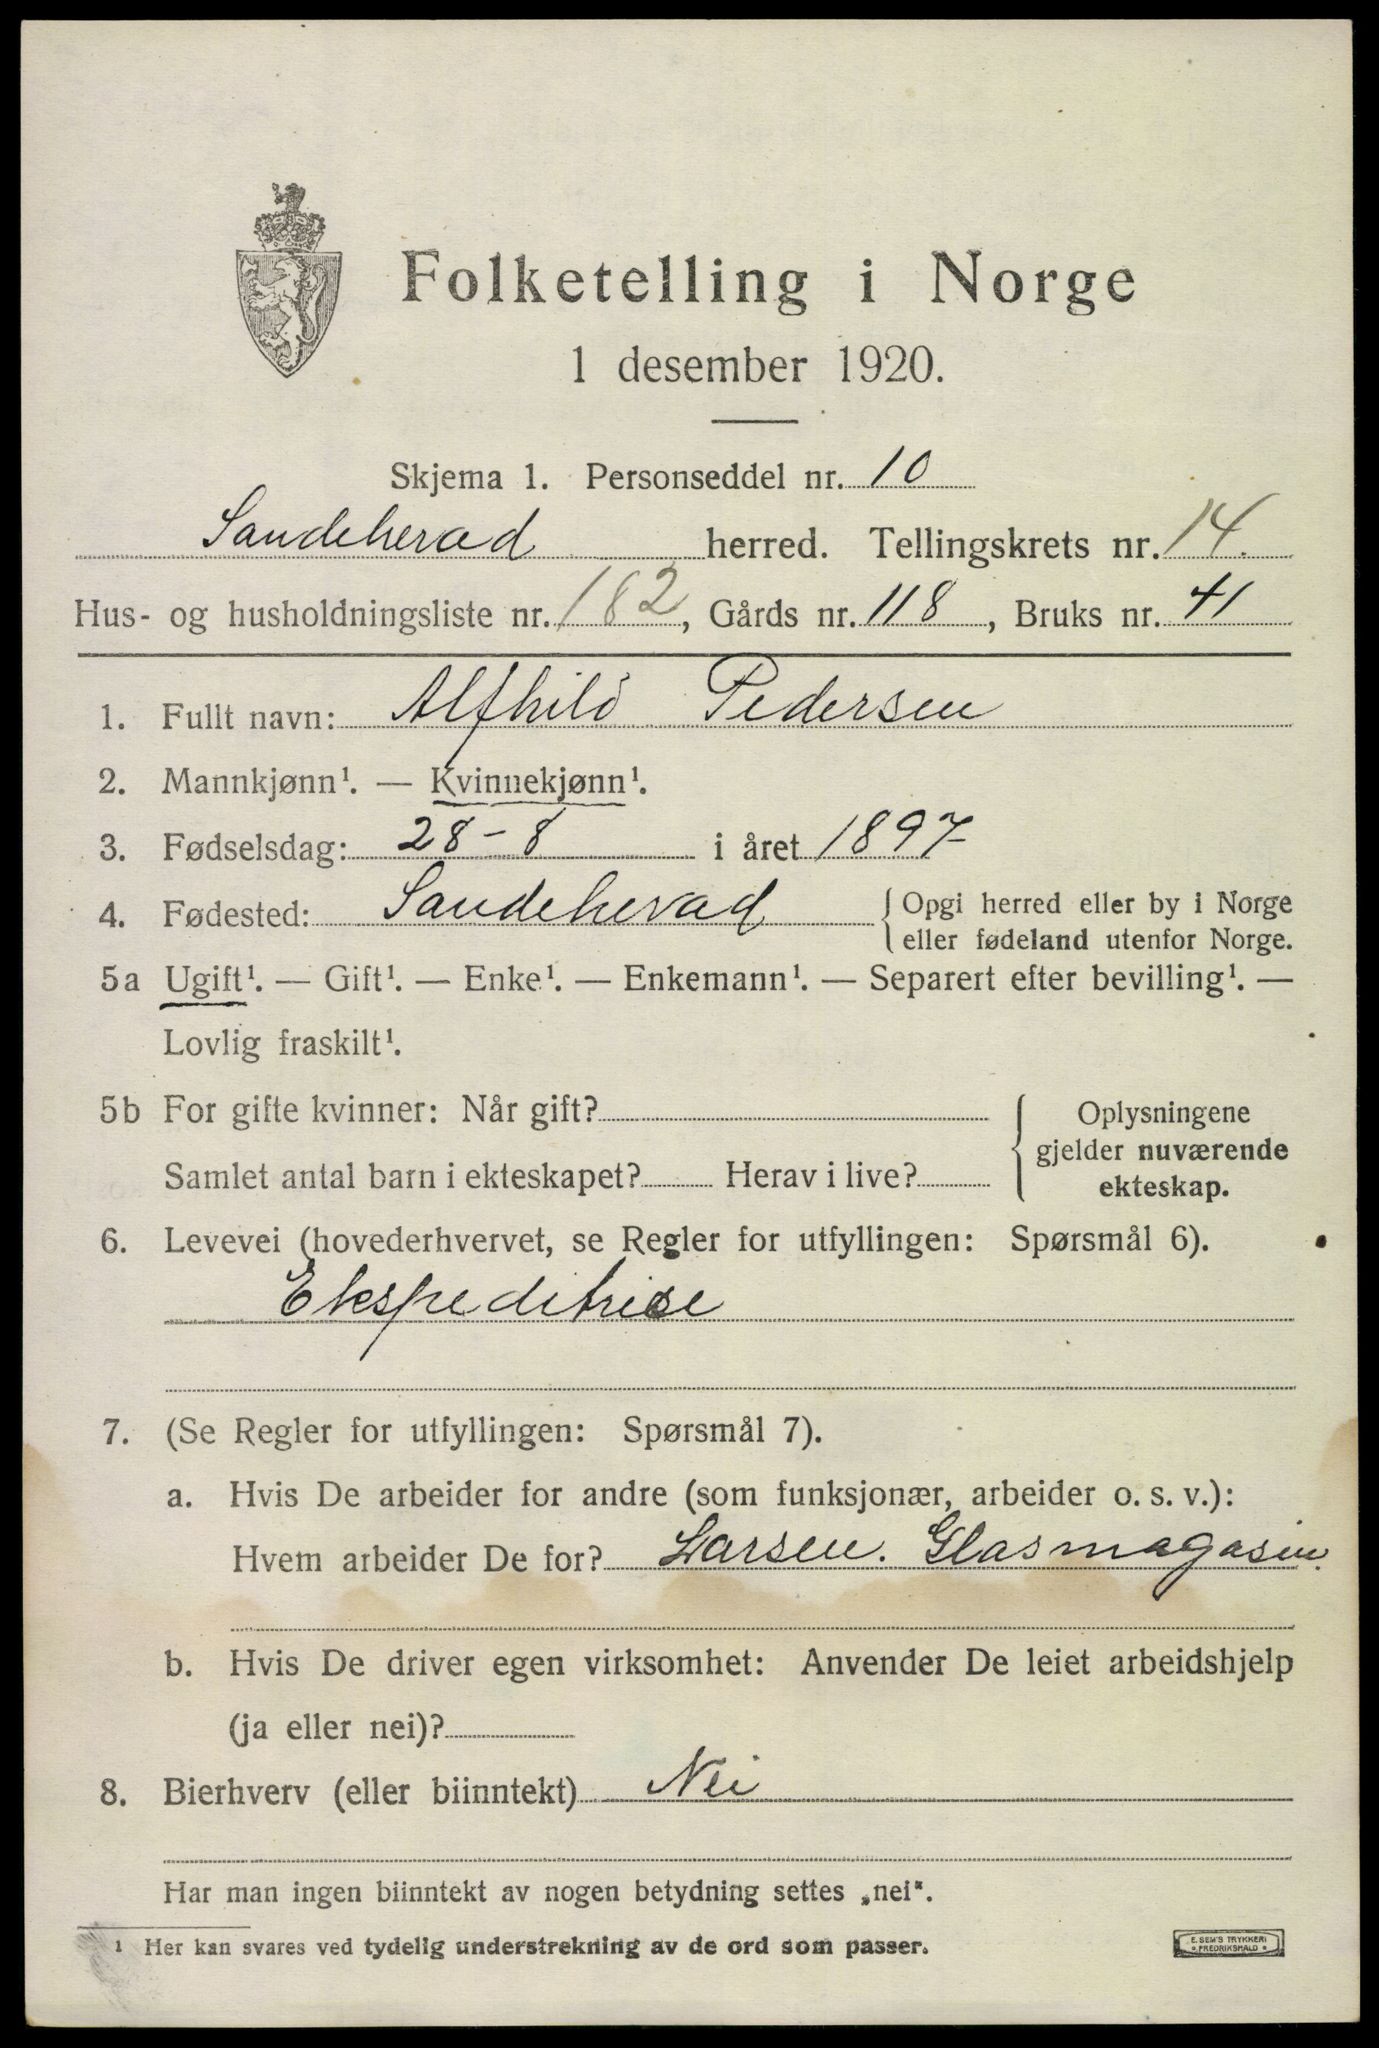 Folketelling i Norge
1 desember 1920.
Skjema 1. Personseddel nr. 10
Sandeherad herred. Tellingskrets nr. 14.
Hus- og husholdningsliste nr. 182, Gårds nr. 118, Bruks nr. 41
1. Fullt navn: Alfhild Pedersen
2. Mannkjønn¹. — Kvinnekjønn¹.
3. Fødselsdag: 28-8 i året 1897
4. Fødested: Sandeherad { Opgi herred eller by i Norge
eller fødeland utenfor Norge.
5a Ugift¹. — Gift¹. — Enke¹. — Enkemann¹. — Separert efter bevilling¹. —
Lovlig fraskilt¹.
5b For gifte kvinner: Når gift?
Samlet antal barn i ekteskapet? Herav i live?
{ Oplysningene
gjelder nuværende
ekteskap.
6. Levevei (hovederhvervet, se Regler for utfyllingen: Spørsmål 6).
Ekspeditrise
7. (Se Regler for utfyllingen: Spørsmål 7).
a. Hvis De arbeider for andre (som funksjonær, arbeider o. s. v.):
Hvem arbeider De for? Larsen. Glasmagasin.
b. Hvis De driver egen virksomhet: Anvender De leiet arbeidshjelp
(ja eller nei)?
8. Bierhverv (eller biinntekt) Nei
Har man ingen biinntekt av nogen betydning settes „nei".
¹ Her kan svares ved tydelig understrekning av de ord som passer.
E. SEM'S TRYKKERI
FREDRIKSHALD